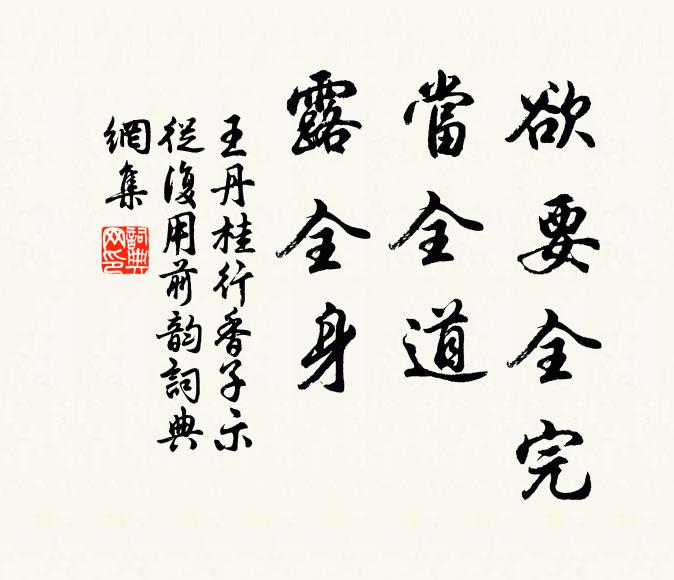 欲要全完
當全道
露全身
王丹桂行香子示
從復用前韵詞典
網集
詞典網印